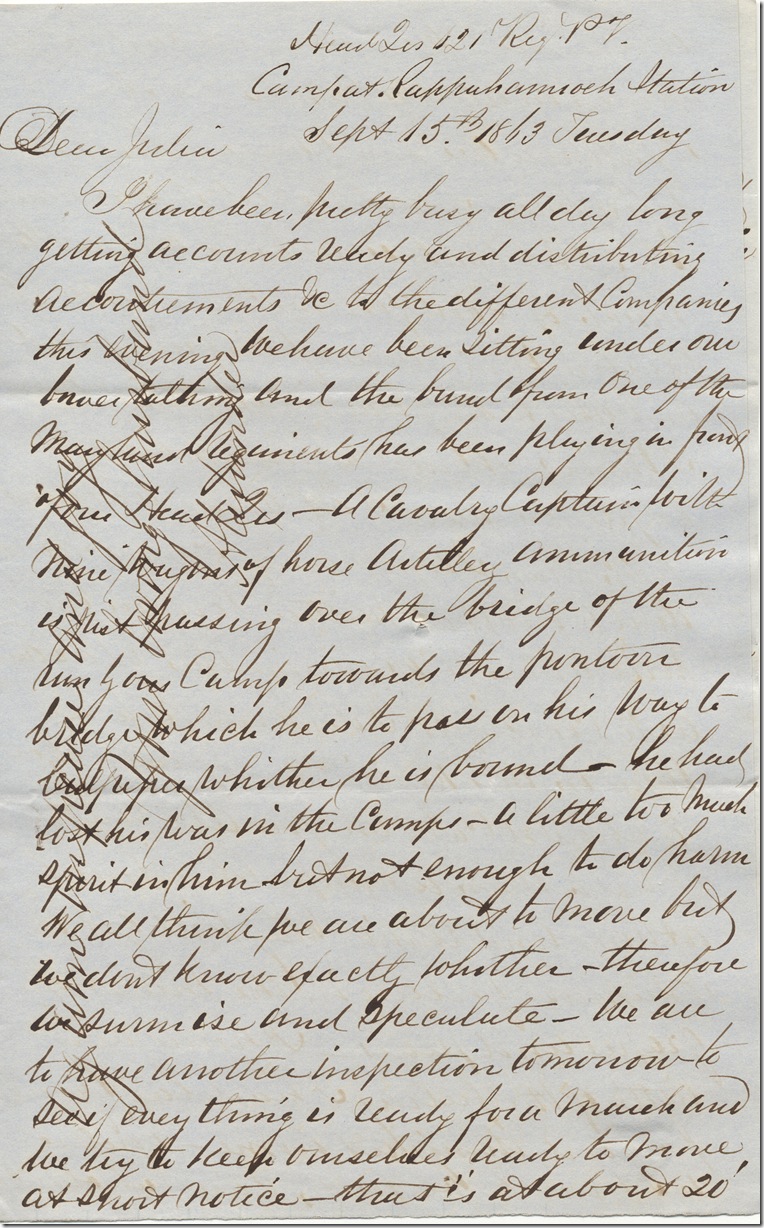 Head Qrs 121' Reg. P.V.
Camp at Rappahannock Station
Sept 15th 1863 Tuesday
Dear Julia
I have been pretty busy all day long
getting accounts ready and distributing
accoutrements &c to the different Companies
this evening We have been sitting under our
bower talking and the band from one of the
Maryland regiments has been playing in front
of our Head Qrs – A Cavalry Captain with
Nine Wagons of horse Artillery ammunition
is just passing over the bridge of the
run by our Camp towards the pontoon
bridge which he is to pass on his way to
Culpeper whither he is bound – he had
lost his way in the Camps – a little too much
spirit in him but not enough to do harm
We all think we are about to move but
we dont know exactly whither – therefore
we surmise and speculate – We are
to have another inspection tomorrow to
see if everything is ready for a March and
we try to keep ourselves ready to move
at short notice – that is at about 20'